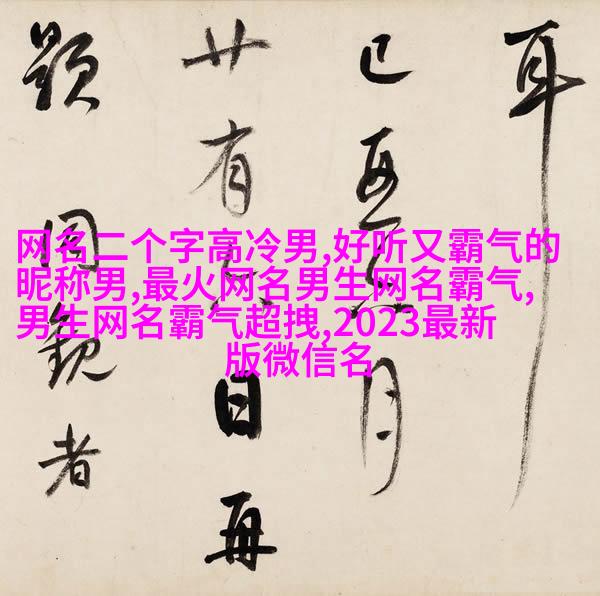 网名二个字高冷男,好听又霸气的
昵称男,最火网名男生网名霸气,
男生网名霸气超拽,2023最新
版微信名
耳
已亥五月
廿有六日再
題圖觀者